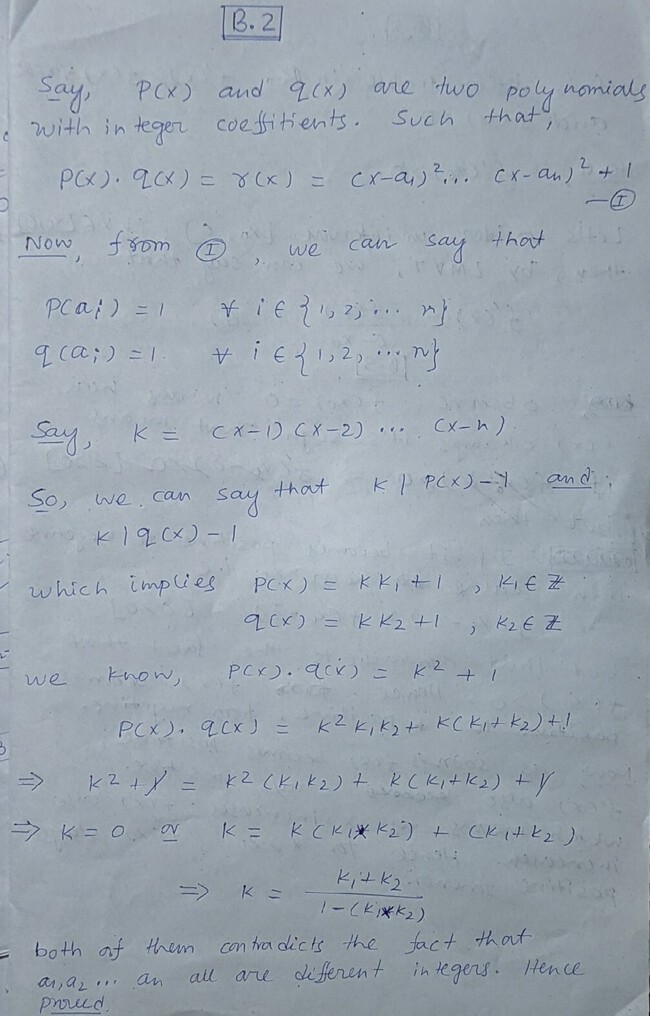 B.2
Say, P(x) and q(x) are two polynomials
with integer coeffitients. Such that,
P(x). q(x) = r(x) = (x-a₁)²... (x-an)² + 1
—Ⓘ
Now, from Ⓘ, we can say that
P(aᵢ) = 1 ∀ i ∈ {1, 2, ... n}
q(aᵢ) = 1. ∀ i ∈ {1, 2, ... n}
Say, K = (x-1) (x-2) ... (x-n)
So, we can say that K | P(x) - 1 and,
K | q(x) - 1
which implies P(x) = KK₁ + 1 , K₁ ∈ ℤ
q(x) = KK₂ + 1 , K₂ ∈ ℤ
we know, P(x). q(x) = K² + 1
P(x). q(x) = K² K₁K₂ + K(K₁+K₂) + 1
⇒ K² + 1 = K² (K₁K₂) + K(K₁+K₂) + 1
⇒ K = 0 or K = K(K₁*K₂) + (K₁+K₂)
⇒ K = (K₁+K₂)/(1-(K₁*K₂))
both of them contradicts the fact that
a₁, a₂ ... an all are different integers. Hence
proved.